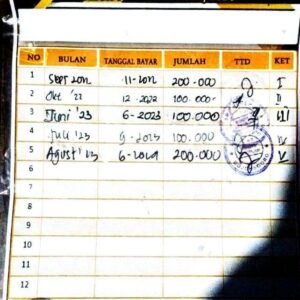 NO BULAN TANGGAL BAYAR JUMLAH TTD KET
1 Sept 2022 11-2022 200.000 I
2 Okt '22 12-2022 100.000- II
3 Juni '23 6-2023 100.000 III
4 Juli '23 9-2023 100.000 IV
5 Agust '23 200.000 V
6
7
8
9
10
11
12